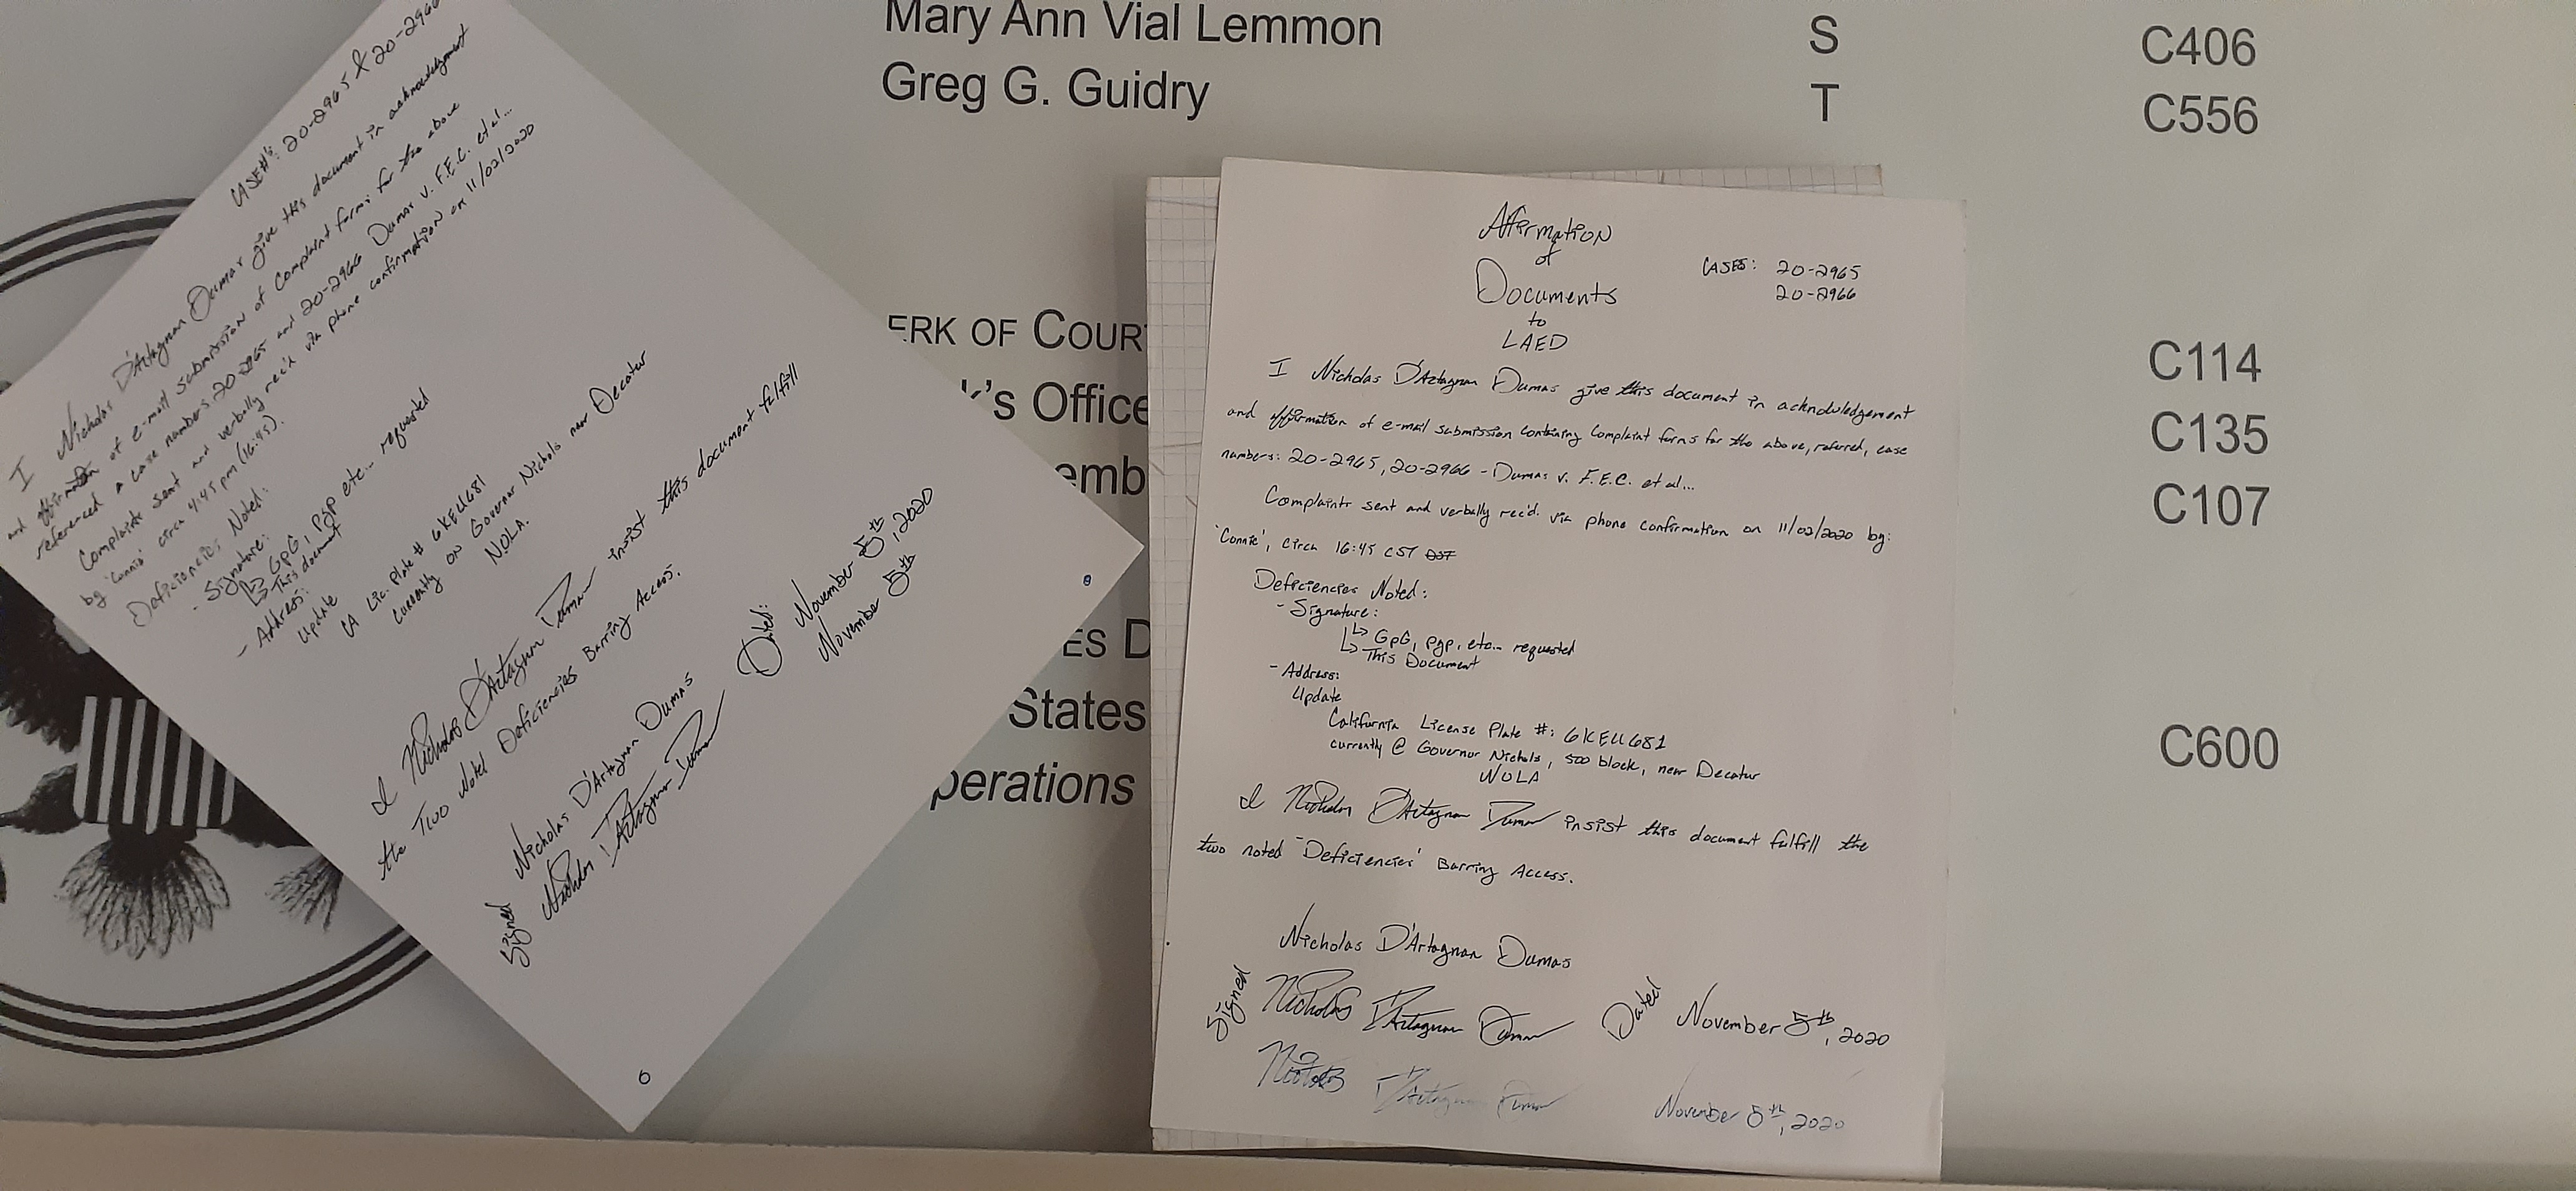 Mary Ann Vial Lemmon S C406
Greg G. Guidry T C556
ERK OF COUR C114
k's Office C135
emb C107
ES D
States C600
perations
CASE#'s: 20-2965 & 20-2966
I Nicholas D'Artagnan Dumas give this document in acknowledgment
and affirmation of e-mail submission of Complaint forms for the above
referenced case numbers 20-2965 and 20-2966 Dumas v. F.E.C. et al...
Complaints sent and verbally rec'd via phone confirmation on 11/02/2020
by 'Connie' circa 4:45 pm (16:45).
Deficiencies Noted:
- Signature:
GpG, pgp etc... requested
This document
- Address:
Update
CA Lic. Plate # 6KEU681
currently on Governor Nichols near Decatur
NOLA.
I Nicholas D'Artagnan Dumas insist this document fulfill
the Two Noted Deficiencies Barring Access.
Nicholas D'Artagnan Dumas
Signed Nicholas D'Artagnan Dumas Dated: November 5th, 2020
November 5th
6
Affirmation
of
Documents
to
LAED
CASES: 20-2965
20-2966
I Nicholas D'Artagnan Dumas give this document in acknowledgement
and affirmation of e-mail submission containing Complaint forms for the above, referred, case
numbers: 20-2965, 20-2966 - Dumas v. F.E.C. et al...
Complaints sent and verbally rec'd. via phone confirmation on 11/02/2020 by:
'Connie', circa 16:45 CST DST
Deficiencies Noted:
- Signature:
GpG, pgp, etc... requested
This Document
- Address:
Update
California License Plate #: 6KEU681
currently @ Governor Nichols, 500 block, near Decatur
NOLA
I Nicholas D'Artagnan Dumas insist this document fulfill the
two noted 'Deficiencies' Barring Access.
Nicholas D'Artagnan Dumas
Signed Nicholas D'Artagnan Dumas Dated November 5th, 2020
Nicholas D'Artagnan Dumas November 5th, 2020